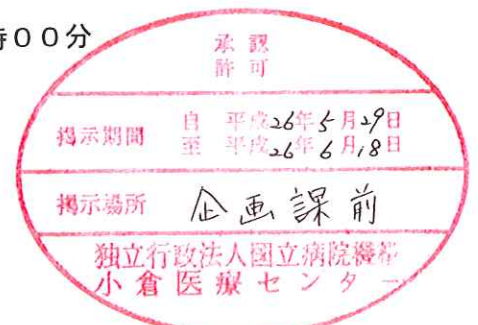 時００分
承認
許可
掲示期間
自 平成26年5月29日
至 平成26年6月18日
掲示場所 企画課前
独立行政法人国立病院機構
小倉医療センター